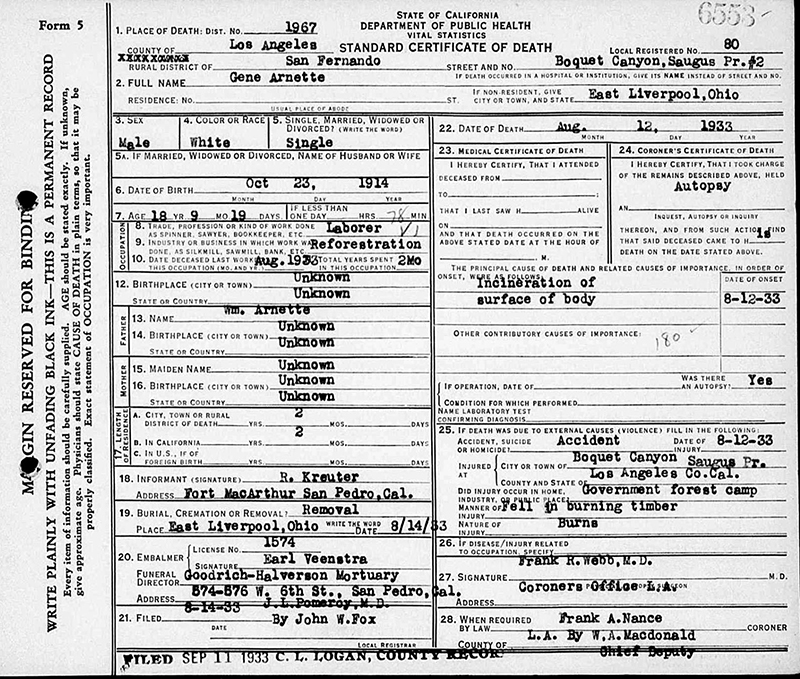 STATE OF CALIFORNIA
DEPARTMENT OF PUBLIC HEALTH
VITAL STATISTICS
STANDARD CERTIFICATE OF DEATH
6553
Form 5
MARGIN RESERVED FOR BINDING
WRITE PLAINLY WITH UNFADING BLACK INK—THIS IS A PERMANENT RECORD
Every item of information should be carefully supplied. AGE should be stated exactly. If unknown,
give approximate age. Physicians should state CAUSE OF DEATH in plain terms, so that it may be
properly classified. Exact statement of OCCUPATION is very important.
1. PLACE OF DEATH: DIST. NO. 1967
COUNTY OF Los Angeles
LOCAL REGISTERED NO. 80
RURAL DISTRICT OF San Fernando STREET AND NO. Boquet Canyon, Saugus Pr.#2
IF DEATH OCCURRED IN A HOSPITAL OR INSTITUTION, GIVE ITS NAME INSTEAD OF STREET AND NO.
2. FULL NAME Gene Arnette
RESIDENCE: NO. ST. IF NON-RESIDENT, GIVE CITY OR TOWN, AND STATE East Liverpool, Ohio
USUAL PLACE OF ABODE
3. SEX Male
4. COLOR OR RACE White
5. SINGLE, MARRIED, WIDOWED OR DIVORCED? (WRITE THE WORD) Single
5A. IF MARRIED, WIDOWED OR DIVORCED, NAME OF HUSBAND OR WIFE
6. DATE OF BIRTH Oct 23, 1914
MONTH DAY YEAR
7. AGE 18 YR 9 MO 19 DAYS IF LESS THAN ONE DAY, HRS MIN
OCCUPATION
8. TRADE, PROFESSION OR KIND OF WORK DONE AS SPINNER, SAWYER, BOOKKEEPER, ETC. Laborer
9. INDUSTRY OR BUSINESS IN WHICH WORK WAS DONE, AS SILKMILL, SAWMILL, BANK, ETC. Reforestration
10. DATE DECEASED LAST WORKED AT THIS OCCUPATION (MO. AND YR.) Aug. 1933 TOTAL YEARS SPENT IN THIS OCCUPATION 2Mo
12. BIRTHPLACE (CITY OR TOWN) Unknown
STATE OR COUNTRY Unknown
FATHER
13. NAME Wm. Arnette
14. BIRTHPLACE (CITY OR TOWN) Unknown
STATE OR COUNTRY Unknown
MOTHER
15. MAIDEN NAME Unknown
16. BIRTHPLACE (CITY OR TOWN) Unknown
STATE OR COUNTRY Unknown
17. LENGTH OF RESIDENCE
A. CITY, TOWN OR RURAL DISTRICT OF DEATH YRS. 2 MOS. DAYS
B. IN CALIFORNIA YRS 2 MOS. DAYS
C. IN U.S., IF OF FOREIGN BIRTH YRS MOS. DAYS
18. INFORMANT (SIGNATURE) R. Kreuter
ADDRESS Fort MacArthur San Pedro, Cal.
19. BURIAL, CREMATION OR REMOVAL? Removal
WRITE THE WORD
PLACE East Liverpool, Ohio DATE 8/14/33
20. EMBALMER LICENSE NO. 1574
SIGNATURE Earl Veenstra
FUNERAL DIRECTOR Goodrich-Halverson Mortuary
ADDRESS 574-576 W. 6th St., San Pedro, Cal.
8-14-33 J.L.Pomeroy, M.D.
21. FILED By John W.Fox
DATE LOCAL REGISTRAR
22. DATE OF DEATH Aug. 12, 1933
MONTH DAY YEAR
23. MEDICAL CERTIFICATE OF DEATH
I HEREBY CERTIFY, THAT I ATTENDED
DECEASED FROM
TO
THAT I LAST SAW H ALIVE
ON
AND THAT DEATH OCCURRED ON THE
ABOVE STATED DATE AT THE HOUR OF
M.
24. CORONER'S CERTIFICATE OF DEATH
I HEREBY CERTIFY, THAT I TOOK CHARGE
OF THE REMAINS DESCRIBED ABOVE, HELD
AN Autopsy
INQUEST, AUTOPSY OR INQUIRY
THEREON, AND FROM SUCH ACTION FIND
THAT SAID DECEASED CAME TO H is
DEATH ON THE DATE STATED ABOVE.
THE PRINCIPAL CAUSE OF DEATH AND RELATED CAUSES OF IMPORTANCE, IN ORDER OF
ONSET, WERE AS FOLLOWS:
DATE OF ONSET
Incineration of
surface of body 8-12-33
OTHER CONTRIBUTORY CAUSES OF IMPORTANCE:
180
IF OPERATION, DATE OF WAS THERE AN AUTOPSY? Yes
CONDITION FOR WHICH PERFORMED
NAME LABORATORY TEST
CONFIRMING DIAGNOSIS
25. IF DEATH WAS DUE TO EXTERNAL CAUSES (VIOLENCE) FILL IN THE FOLLOWING:
ACCIDENT, SUICIDE OR HOMICIDE? Accident DATE OF INJURY 8-12-33
INJURED AT CITY OR TOWN OF Boquet Canyon Saugus Pr.
COUNTY AND STATE OF Los Angeles Co.Cal.
DID INJURY OCCUR IN HOME, INDUSTRY, OR PUBLIC PLACE? Government forest camp
MANNER OF INJURY Fell in burning timber
NATURE OF INJURY Burns
26. IF DISEASE/INJURY RELATED TO OCCUPATION, SPECIFY
Frank R.Webb, M.D.
27. SIGNATURE M.D.
Coroners Office L.A.
ADDRESS
28. WHEN REQUIRED BY LAW Frank A.Nance CORONER
L.A. By W.A.Macdonald
COUNTY OF Chief Deputy
FILED SEP 11 1933 C. L. LOGAN, COUNTY RECOR